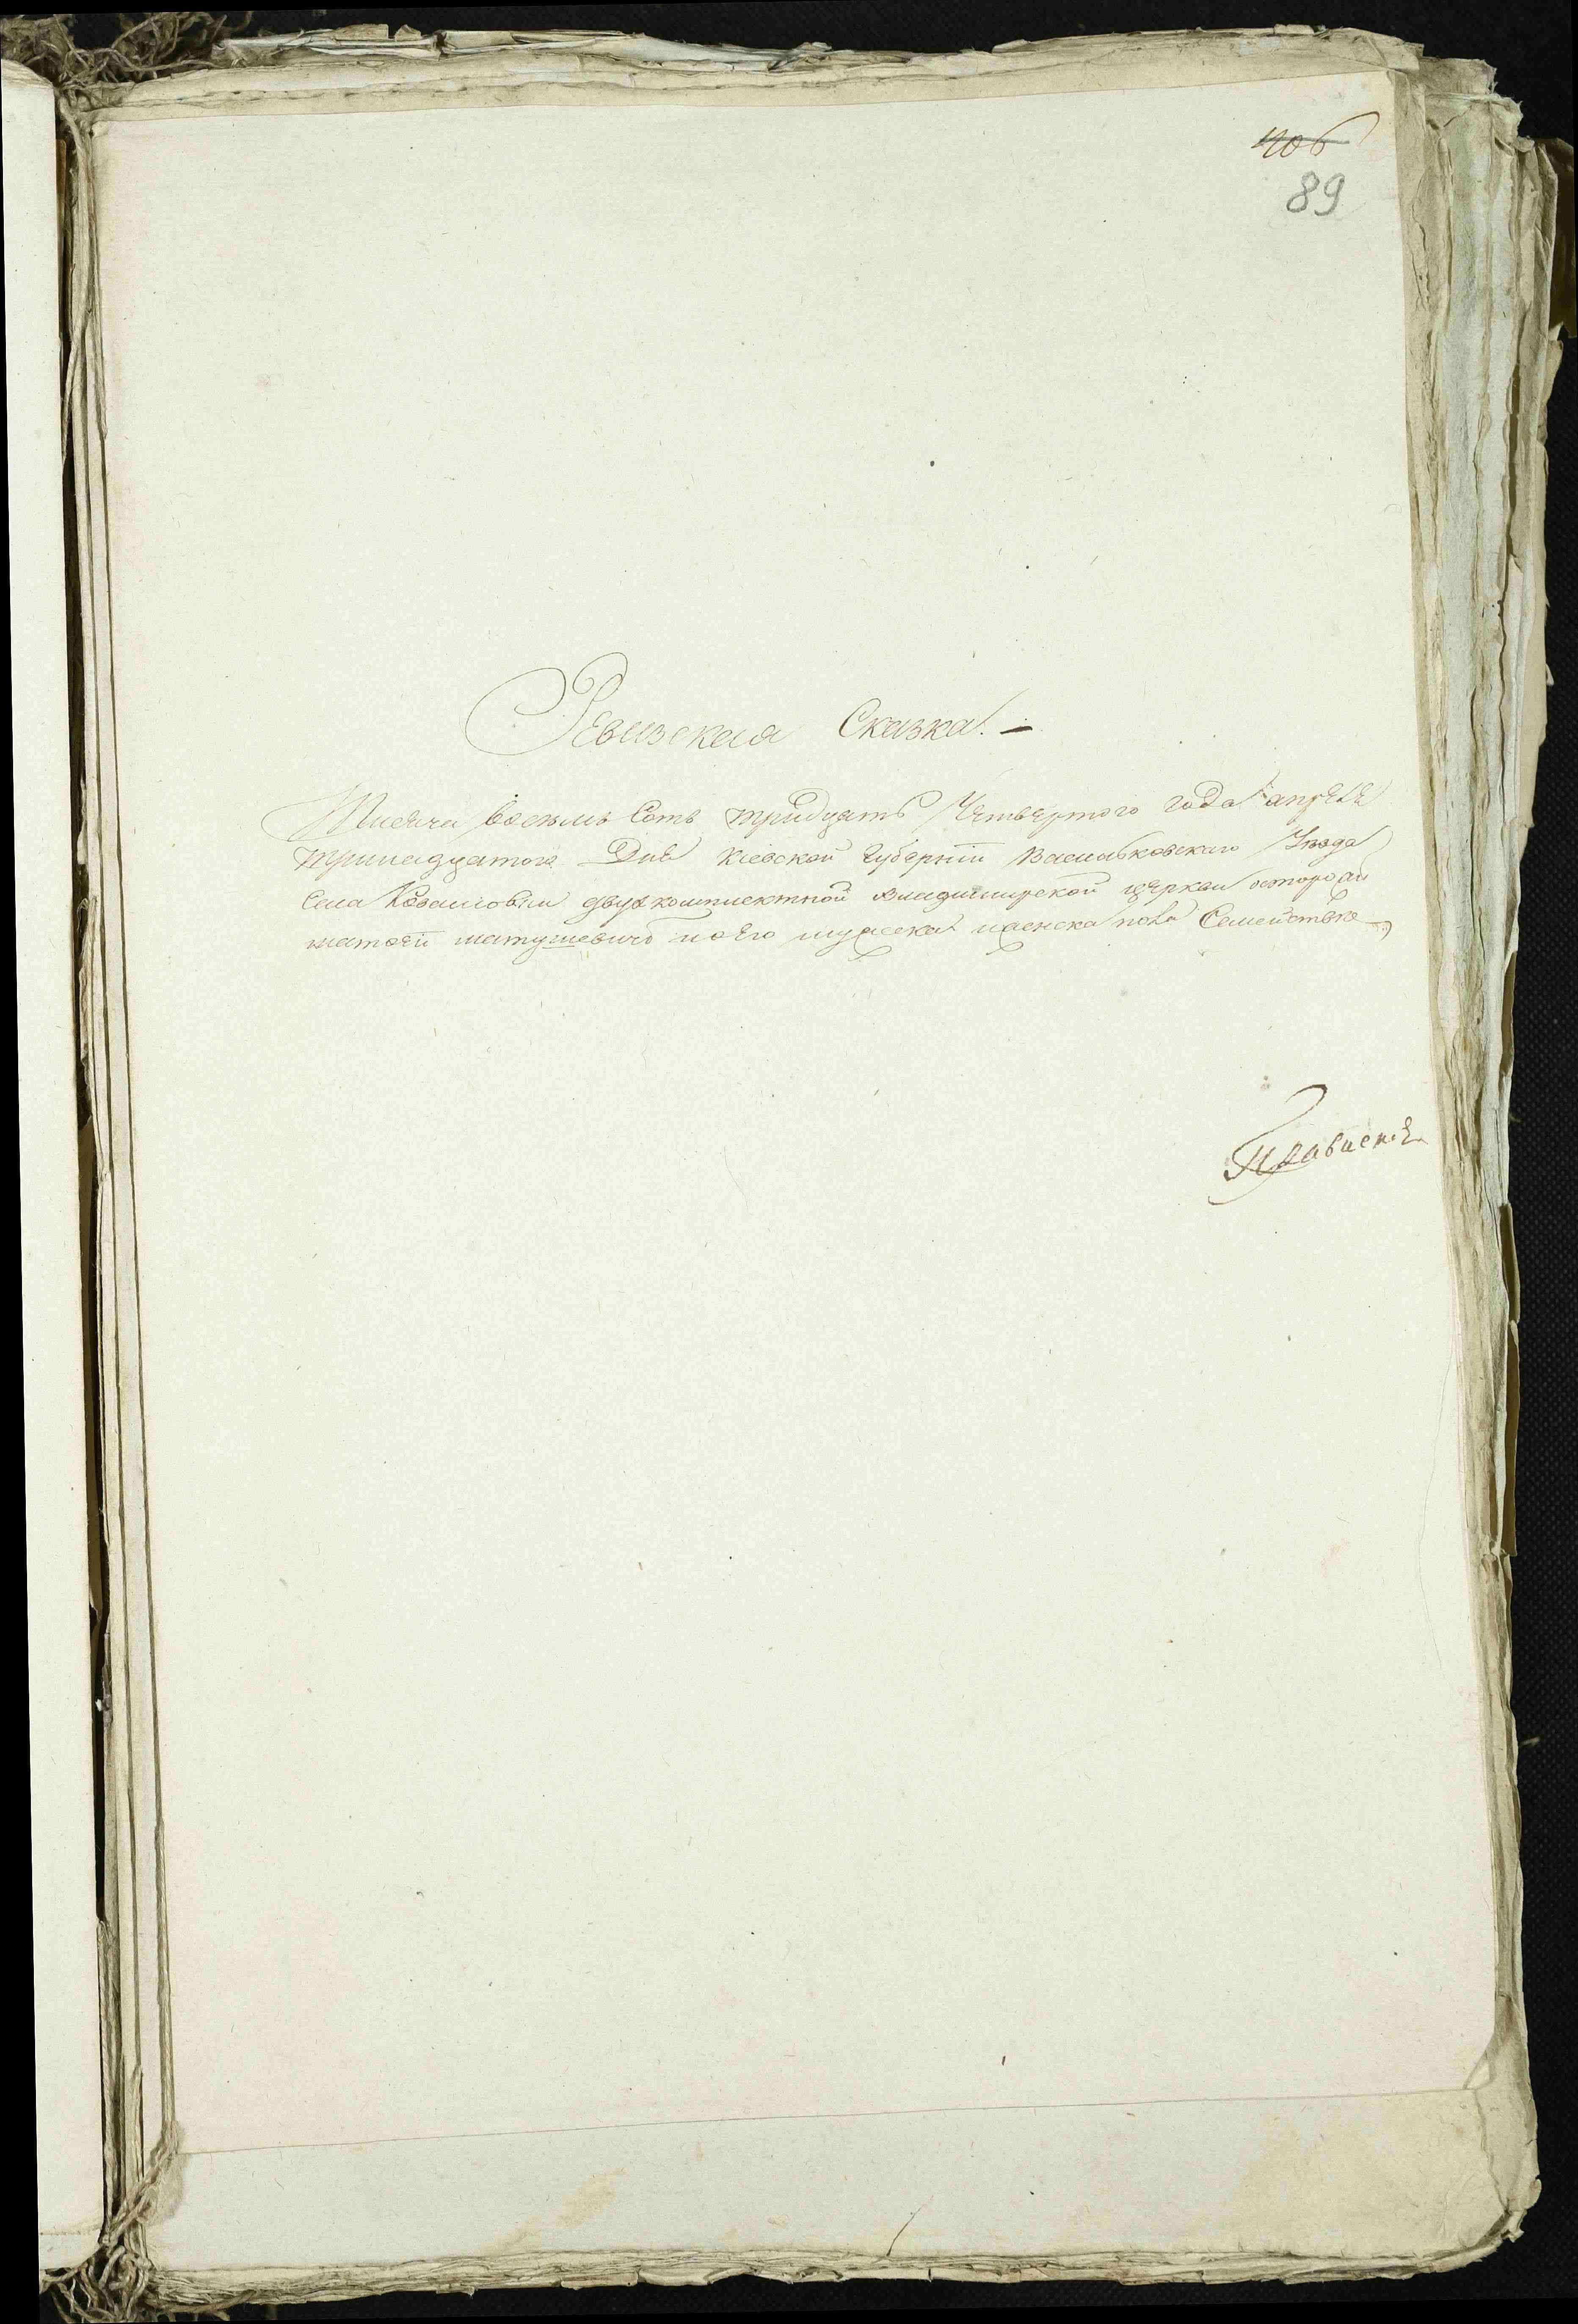 106
89
Ревизская Сказка. —
Тисяча восемь Сотъ тридцать Четвертого года апреля
тринадцатого Дня Кіевской Губерніи Васильковского Уезда
Села двухкомплектной Владимирской церкви
матвей матушевичъ и его мужеска и женска пола Семействе